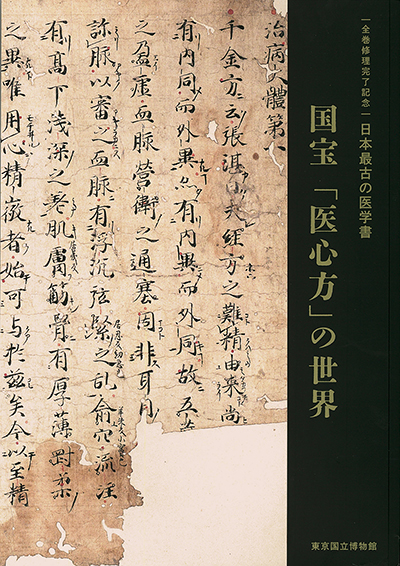 全巻修理完了記念
日本最古の医学書
国宝「医心方」の世界
東京国立博物館
治病大體第一
千金方云張湛曰夫経方之難精由来尚
有内同而外異亦有内異而外同故五
之盈虚血脉營衛之通塞固非耳目
診脉以審之血脉有浮沉弦緊之乱俞穴流注
有高下浅深之差肌膚筋骨有厚薄
之異唯用心精微者始可与於茲矣今以至精